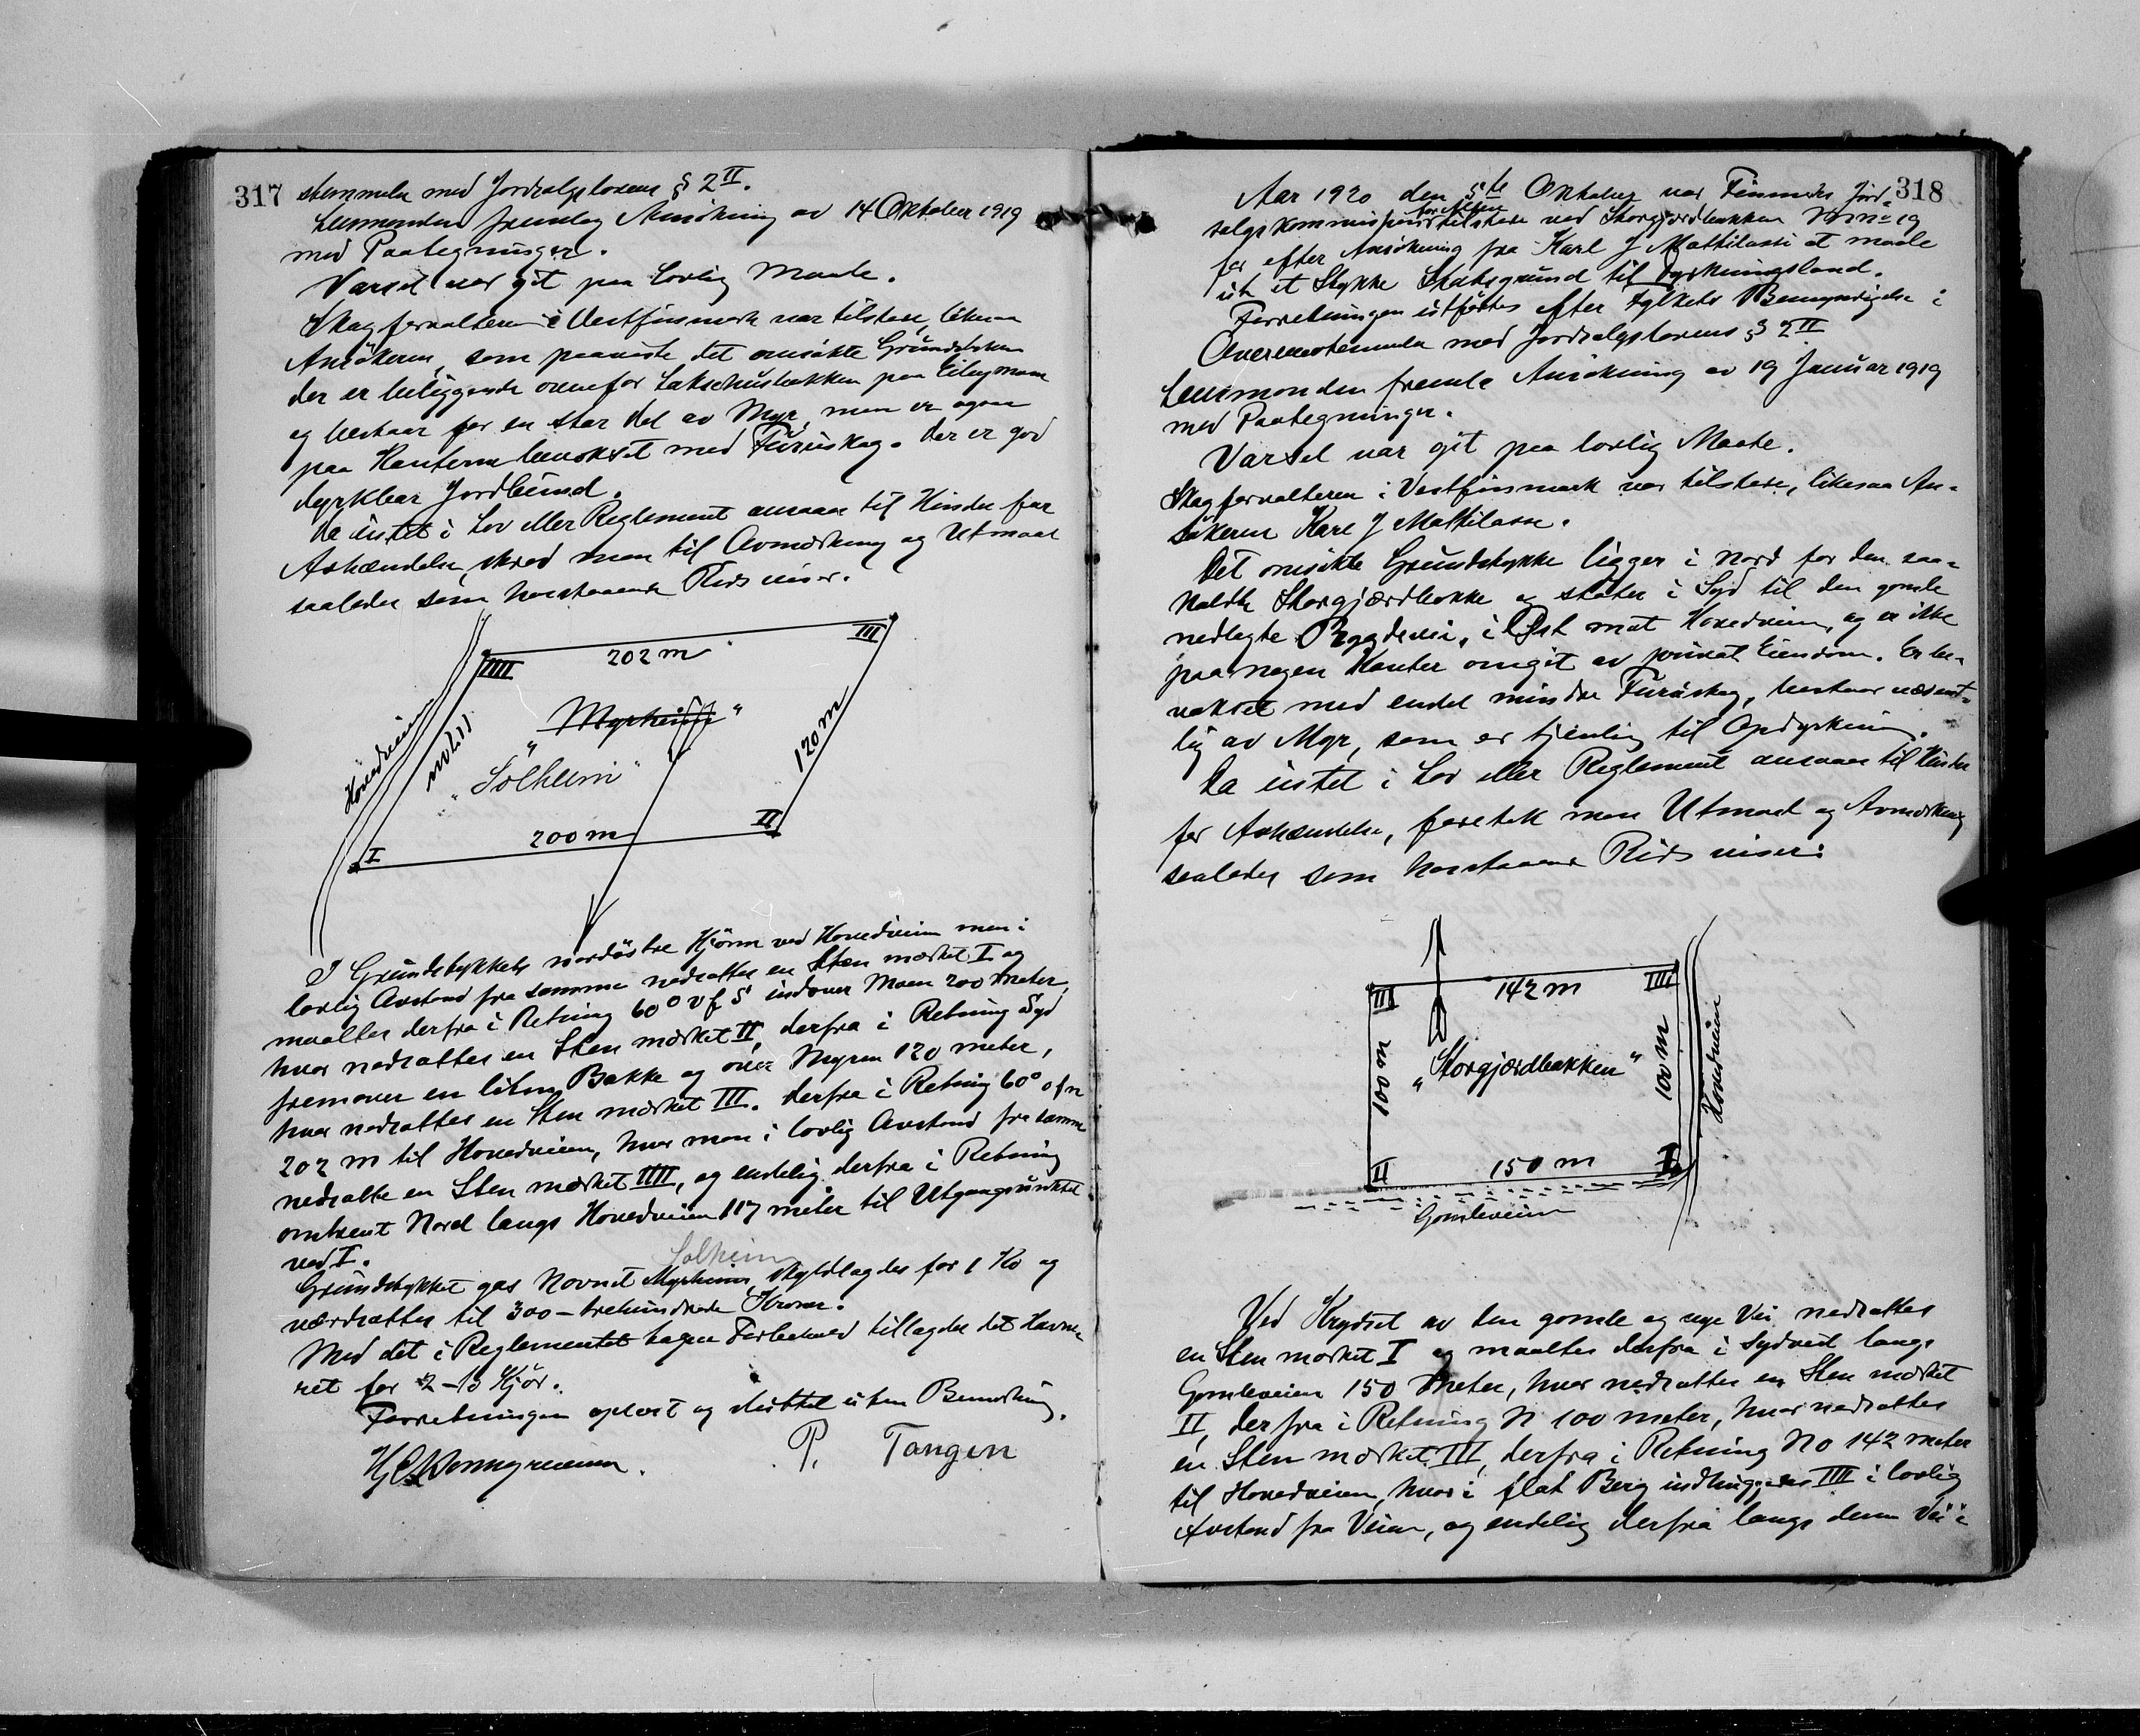 317
stemmelse med Jordsalgslovens § 2 II.
Lensmanden fremlag Ansökning av 14 Oktober 1919
med Paategninger.
Varsel var git paa lovlig Maate.
Skogforvalteren i Vestfinmark var tilstede, likesaa
Ansökeren, som paaviste det omsökte Grundstykke
der er beliggende ovenfor Laksehusbakken paa
og bestaar for en stor del av Myr, men er ogsaa
paa Kanterne bevokset med Furuskog. Der er god
dyrkbar Jordbund.
Da intet i Lov eller Reglement ansaaes til Hinder for
Avhændelse, skred man til Avmerkning og Utmaal
saaledes som hosstaaende Rids viser.
202 m
IIII
III
Hovedveien
117 m
"Myrheim"
"Solheim"
120 m
200 m
I
II
I Grundstykkets nordöstre Hjörne ved Hovedveien men i
lovlig Avstand fra samme nedsattes en Sten merket I og
maaltes derfra i Retning 60° v f S indover Moen 200 meter,
hvor nedsattes en Sten merket II, derfra i Retning Syd
fremover en liten Bakke og over Myren 120 meter,
hvor nedsattes en Sten merket III. Derfra i Retning 60° o f n
202 m til Hovedveien, hvor man i lovlig Avstand fra samme
nedsatte en Sten merket IIII, og endelig derfra i Retning
omtrent Nord langs Hovedveien 117 meter til Utgangspunktet
ved I.
Solheim
Grundstykket gas Navnet Myrheim, skyldlagdes for 1 Kö og
værdsattes til 300 – trehundrede Kroner.
Med det i Reglementet tagne Forbehold tillagdes det Havne-
ret for 2–3 Kjör.
Forretningen oplæst og sluttet uten Bemerkning.
P. Tangen
318
Aar 1920 den 5te Oktober var Finmarks Jord-
salgskommission for Alten tilstede ved Storgjærdbakken
for efter Ansökning fra Karl J Mattilassi at maale
ut et Stykke Statsgrund til Dyrkningsland.
Forretningen utförtes efter Fylkets Bemyndigelse i
Overensstemmelse med Jordsalgslovens § 2 II
Lensmanden fremla Ansökning av 19 Januar 1919
med Paategninger.
Varsel var git paa lovlig Maate.
Skogforvalteren i Vestfinmark var tilstede, likesaa An-
sökeren Karl J Mattilassi.
Det omsökte Grundstykke ligger i Nord for den saa-
kaldte Storgjærdbakke og stöter i Syd til den gamle
nedlagte Bygdevei, i Öst mot Hovedveien, og er ikke
paa nogen Kanter omgit av privat Eiendom. Er be-
vokset med endel mindre Furuskog, bestaar væsent-
lig av Myr, som er tjenlig til Opdyrkning.
Da intet i Lov eller Reglement ansaaes til Hinder
for Avhændelse, foretok man Utmaal og Avmerkning
saaledes som hosstaaende Rids viser:
III
142 m
IIII
100 m
"Storgjærdbakken"
100 m
Hovedveien
II
150 m
I
Gamleveien
Ved Krydset av den gamle og nye Vei nedsattes
en Sten merket I og maaltes derfra i Sydvest langs
Gamleveien 150 Meter, hvor nedsattes en Sten merket
II, derfra i Retning N 100 meter, hvor nedsattes
en Sten merket III, derfra i Retning NO 142 meter
til Hovedveien, hvor i flat Berg indhuggedes IIII i lovlig
Avstand fra Veien, og endelig derfra langs denne Vei i